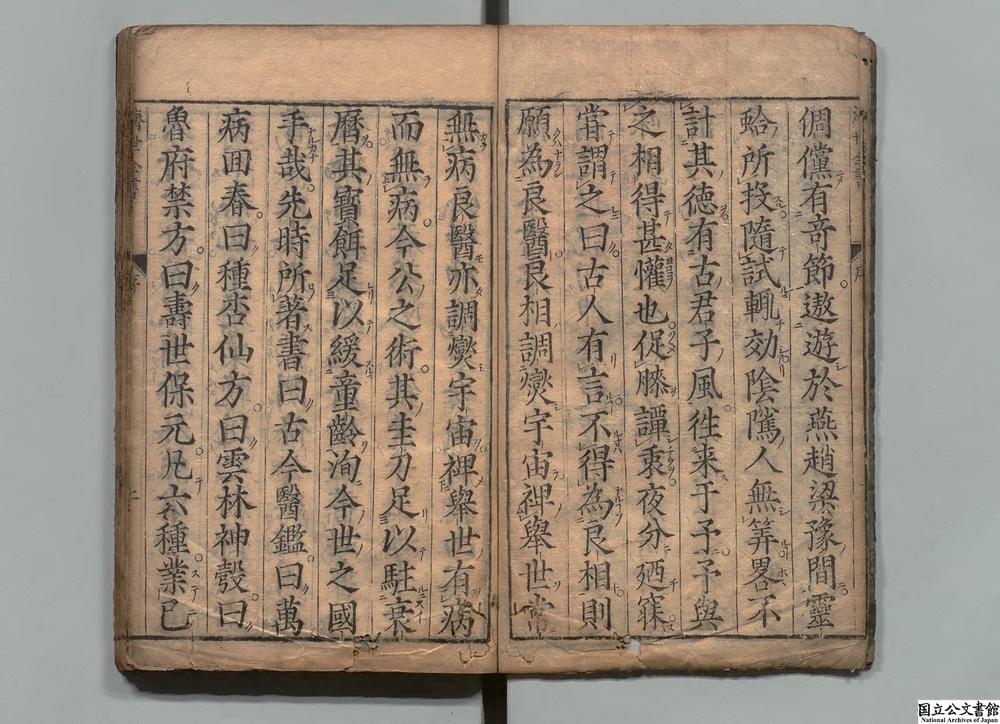 倜儻有竒節遨遊於燕趙梁豫間靈
蛤所投隨試輒効陰騭人無筭畧不
計其德有古君子風徃来于予予與
之相得甚懽也促膝譚衷夜分廼寐
甞謂之曰古人有言不得為良相則
願為良醫良相調爕宇宙裨舉世常
無病良醫亦調爕宇宙裨舉世有病
而無病今公之術其圭刀足以駐衰
曆其寳餌足以緩童齡洵今世之國
手哉先時所著書曰古今醫鑑曰萬
病囬春曰種杏仙方曰雲林神彀曰
魯府禁方曰夀世保元凡六種業已
序
国立公文書館
National Archives of Japan